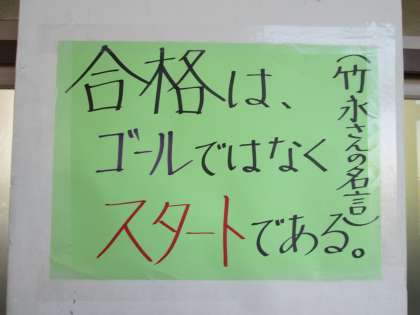 合格は、
ゴールではなく
スタートである。
(竹永さんの名言)